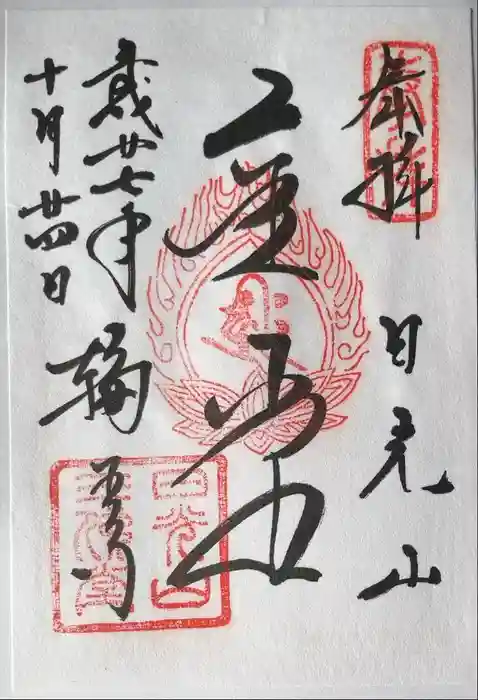 奉拝
日光山
金堂
廿七年 輪王寺
十月廿四日
日光山
三佛堂